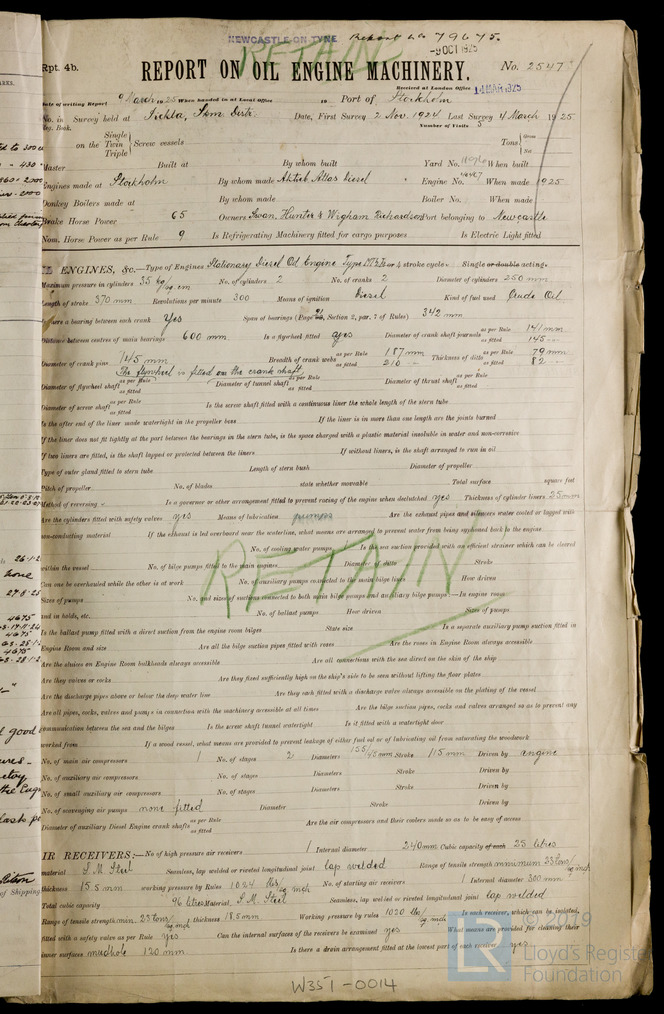 NEWCASTLE-ON-TYNE Report No 79675.
RETAIN
-9 OCT 1925
Rpt. 4b.
REPORT ON OIL ENGINE MACHINERY.
No. 2547
Received at London Office 14 MAR 1925
Date of writing Report 9 March 1925 When handed in at Local Office 19 Port of Stockholm
No. in Survey held at Sickla, Sthm Distr. Date, First Survey 2 Nov. 1924 Last Survey 4 March 1925
Reg. Book. Number of Visits 5
on the Single Twin Triple Screw vessels Tons Gross Net
Master Built at By whom built Yard No. When built
Engines made at Stockholm By whom made Aktieb Atlas Diesel Engine No. When made 1925
Donkey Boilers made at By whom made Boiler No. When made
Brake Horse Power 65 Owners Swan, Hunter & Wigham Richardson Port belonging to Newcastle
Nom. Horse Power as per Rule 9 Is Refrigerating Machinery fitted for cargo purposes Is Electric Light fitted
ENGINES, &c.—Type of Engines Stationary Diesel Oil Engine Type 4 stroke cycle. Single or double acting.
Maximum pressure in cylinders 35 kg/sq cm No. of cylinders 2 No. of cranks 2 Diameter of cylinders 250 mm
Length of stroke 370 mm Revolutions per minute 300 Means of ignition Diesel Kind of fuel used Crude Oil
Is there a bearing between each crank Yes Span of bearings (Page 92, Section 2, par. 7 of Rules) 342 mm
Distance between centres of main bearings 600 mm Is a flywheel fitted yes Diameter of crank shaft journals as per Rule 141 mm as fitted 145 --
Diameter of crank pins 145 mm Breadth of crank webs as per Rule 187 mm as fitted 210 -- Thickness of ditto as per Rule 79 mm as fitted 82 --
The flywheel is fitted on the crank shaft.
Diameter of flywheel shaft as per Rule as fitted Diameter of tunnel shaft as per Rule as fitted Diameter of thrust shaft as per Rule as fitted
Diameter of screw shaft as per Rule as fitted Is the screw shaft fitted with a continuous liner the whole length of the stern tube
Is the after end of the liner made watertight in the propeller boss If the liner is in more than one length are the joints burned
If the liner does not fit tightly at the part between the bearings in the stern tube, is the space charged with a plastic material insoluble in water and non-corrosive
If two liners are fitted, is the shaft lapped or protected between the liners If without liners, is the shaft arranged to run in oil
Type of outer gland fitted to stern tube Length of stern bush Diameter of propeller
Pitch of propeller No. of blades state whether moveable Total surface square feet
Method of reversing - Is a governor or other arrangement fitted to prevent racing of the engine when declutched yes Thickness of cylinder liners 25 mm
Are the cylinders fitted with safety valves yes Means of lubrication pumps Are the exhaust pipes and silencers water cooled or lagged with
non-conducting material If the exhaust is led overboard near the waterline, what means are arranged to prevent water from being syphoned back to the engine
No. of cooling water pumps Is the sea suction provided with an efficient strainer which can be cleared
within the vessel No. of bilge pumps fitted to the main engines Diameter of ditto Stroke
Can one be overhauled while the other is at work No. of auxiliary pumps connected to the main bilge lines How driven
Sizes of pumps No. and sizes of suctions connected to both main bilge pumps and auxiliary bilge pumps:—In engine room
and in holds, etc. No. of ballast pumps How driven Sizes of pumps
RETAIN
Is the ballast pump fitted with a direct suction from the engine room bilges State size Is a separate auxiliary pump suction fitted in
Engine Room and size Are all the bilge suction pipes fitted with roses Are the roses in Engine Room always accessible
Are the sluices on Engine Room bulkheads always accessible Are all connections with the sea direct on the skin of the ship
Are they valves or cocks Are they fixed sufficiently high on the ship's side to be seen without lifting the floor plates
Are the discharge pipes above or below the deep water line Are they each fitted with a discharge valve always accessible on the plating of the vessel
Are all pipes, cocks, valves and pumps in connection with the machinery accessible at all times Are the bilge suction pipes, cocks and valves arranged so as to prevent any
communication between the sea and the bilges Is the screw shaft tunnel watertight Is it fitted with a watertight door
worked from If a wood vessel, what means are provided to prevent leakage of either fuel oil or of lubricating oil from saturating the woodwork
No. of main air compressors 1 No. of stages 2 Diameters 155/48 mm Stroke 115 mm Driven by engine
No. of auxiliary air compressors No. of stages Diameters Stroke Driven by
No. of small auxiliary air compressors No. of stages Diameters Stroke Driven by
No. of scavenging air pumps none fitted Diameter Stroke Driven by
Diameter of auxiliary Diesel Engine crank shafts as per Rule as fitted Are the air compressors and their coolers made so as to be easy of access
IR RECEIVERS:—No. of high pressure air receivers 1 Internal diameter 240 mm Cubic capacity of each 25 litres
material S.M. Steel Seamless, lap welded or riveted longitudinal joint lap welded Range of tensile strength minimum 23 tons/sq inch
thickness 15.5 mm working pressure by Rules 1024 lbs/sq inch No. of starting air receivers 1 Internal diameter 300 mm
Total cubic capacity 96 litres Material S.M. Steel Seamless, lap welded or riveted longitudinal joint lap welded
Range of tensile strength min. 23 tons/sq inch thickness 18.5 mm Working pressure by rules 1020 lbs/sq inch Is each receiver, which can be isolated,
fitted with a safety valve as per Rule yes Can the internal surfaces of the receivers be examined yes What means are provided for cleaning their
inner surfaces mudhole 120 mm Is there a drain arrangement fitted at the lowest part of each receiver yes
W351-0014
LR
© 2019
Lloyd's Register
Foundation